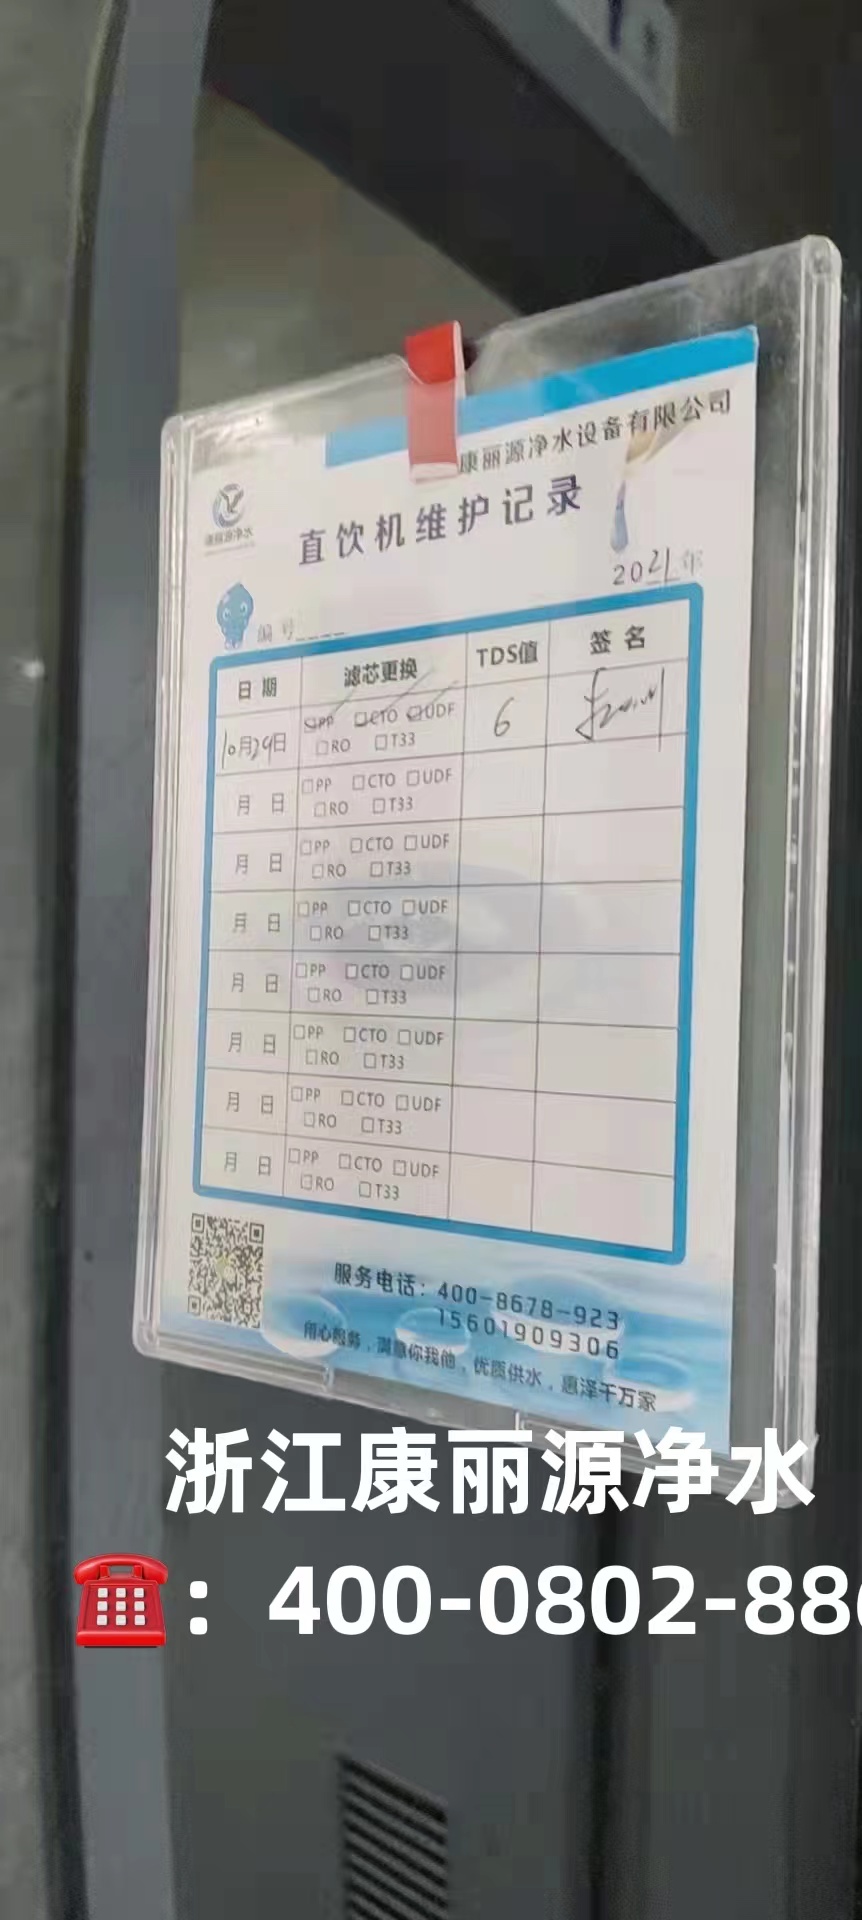 康丽源净水设备有限公司
直饮机维护记录
2021年
编号
日期 滤芯更换 TDS值 签名
10月29日 ☑PP ☑CTO ☑UDF 6
□RO □T33
月 日 □PP □CTO □UDF
□RO □T33
月 日 □PP □CTO □UDF
□RO □T33
月 日 □PP □CTO □UDF
□RO □T33
月 日 □PP □CTO □UDF
□RO □T33
月 日 □PP □CTO □UDF
□RO □T33
月 日 □PP □CTO □UDF
□RO □T33
月 日 □PP □CTO □UDF
□RO □T33
服务电话：400-8678-923
15601909306
用心服务，满意你我他，优质供水，惠泽千万家
浙江康丽源净水
☎️：400-0802-88